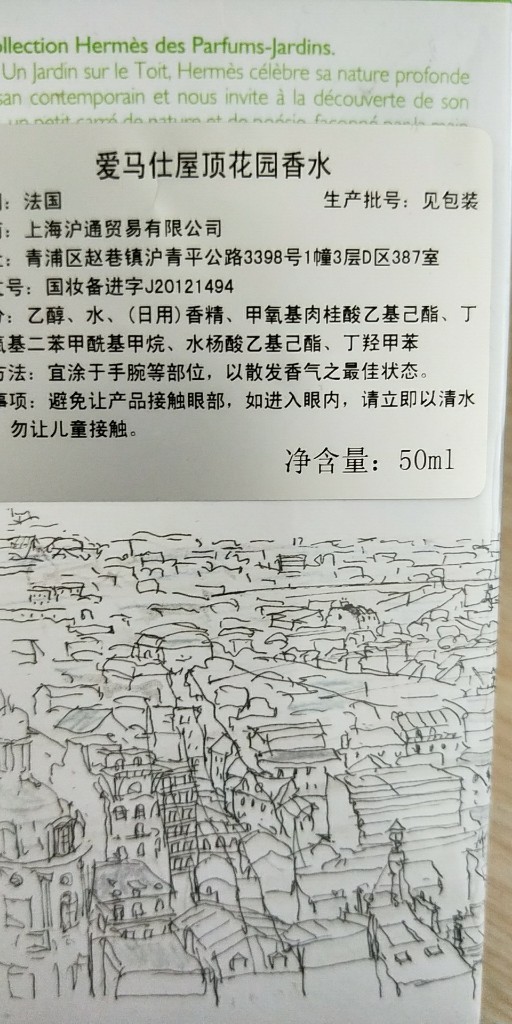 llection Hermès des Parfums-Jardins.
Un Jardin sur le Toit, Hermès célèbre sa nature profonde
san contemporain et nous invite à la découverte de son
un petit carré de nature et de poésie, façonné par la main
爱马仕屋顶花园香水
：法国 生产批号：见包装
：上海沪通贸易有限公司
：青浦区赵巷镇沪青平公路3398号1幢3层D区387室
号：国妆备进字J20121494
：乙醇、水、(日用)香精、甲氧基肉桂酸乙基己酯、丁
氧基二苯甲酰基甲烷、水杨酸乙基己酯、丁羟甲苯
方法：宜涂于手腕等部位，以散发香气之最佳状态。
事项：避免让产品接触眼部，如进入眼内，请立即以清水
勿让儿童接触。
净含量：50ml